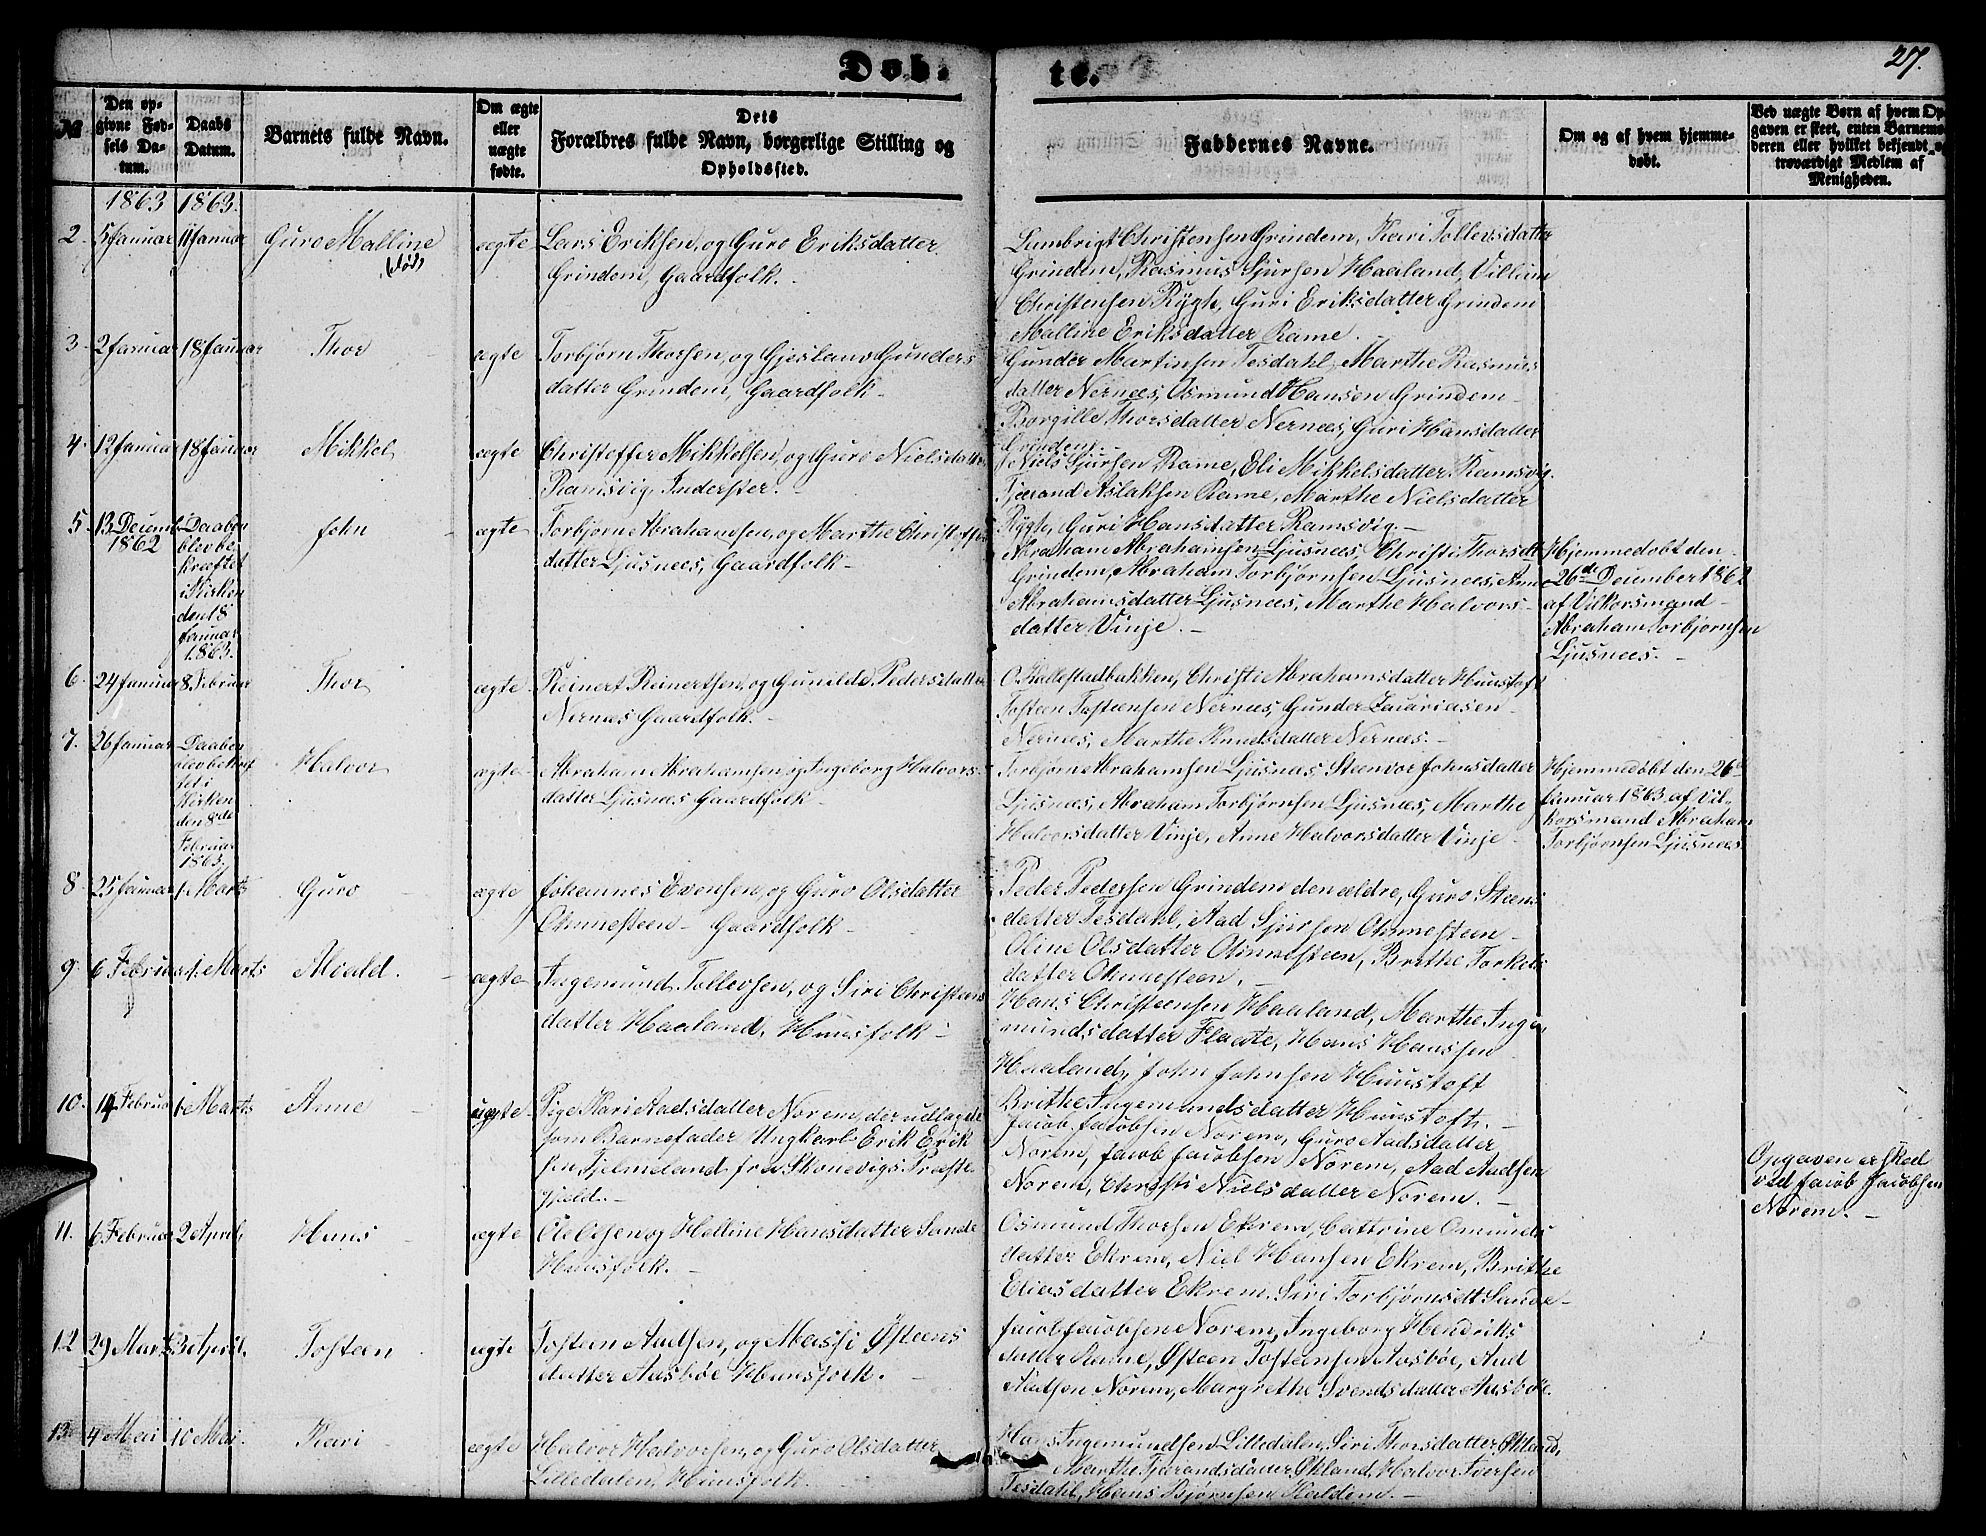 Døb-
te.
27.
№
Den op-
givne Fød-
sels Da-
tum.
Daabs
Datum.
Barnets fulde Navn.
Om ægte
eller
uægte
fødte.
Dets
Forældres fulde Navn, borgerlige Stilling og
Opholdssted.
Faddernes Navne.
Om og af hvem hjemme-
døbt.
Ved uægte Børn af hvem Op-
gaven er skeet, enten Barnemo-
deren eller hvilket bekjendt og
troværdigt Medlem af
Menigheden.
1863 1863.
2. 5 Januar 11 Januar Guro Malline ægte Lars Eriksen, og Guro Eriksdatter
død
Grindem, Gaardfolk.
Lambrigt Christensen Grindem, Kari Tollevsdatter
Grindem, Rasmus Sjursen Haaland, Villum
Christensen Rygh, Guri Eriksdatter Grindem
Malline Eriksdatter Rame.
3. 2 Januar 18 Januar Thor ægte Torbjørn Thorsen, og Gjeslaug Gunders
datter Grindem, Gaardfolk.
Gunder Martinsen Tesdahl, Marthe Rasmus
datter Nernæs, Osmund Hansen Grindem
Borgille Thorsdatter Nernæs, Guri Hansdatter
Grindem.
4. 12 Januar 18 Januar Mikkel ægte Christoffer Mikkelsen, og Guro Nielsdatter
Ramsvig, Inderster.
Niels Sjursen Rame, Eli Mikkelsdatter Ramsvig.
Tjærand Aslaksen Rame, Marthe Nielsdatter
Rygh, Guri Hansdatter Ramsvig.
5. 13 Decemb. 1862 Daaben
blev be-
kræftet
i Kirken
den 18
Januar
1863.
John ægte Torbjørn Abrahamsen, og Marthe Christoffer
datter Ljusnæs, Gaardfolk
Abraham Abrahamsen Ljusnæs, Christi Thorsdt
Grindem, Abraham Torbjørnsen Ljusnæs, Anne
Abrahamsdatter Ljusnæs, Marthe Halvors-
datter Vinje.
Hjemmedøbt den
26d December 1862
af Vilkorsmand
Abraham Torbjørnsen
Ljusnæs.
6. 24 Januar 8 Februar Thor ægte Reinert Reinertsen, og Gunilde Pedersdatter
Nernæs Gaardfolk.
O. Kallestadbakken, Christi Abrahamsdatter Huustoft
Tosteen Tosteensen Nernæs, Gunder Zacariasen
Nernæs, Marthe Knudsdatter Nernæs.
7. 26 Januar Daaben
blev bekræf
tet i
Kirken
den 8de
Februar
1863.
Halvor ægte Abraham Abrahamsen, og Ingeborg Halvors-
datter Ljusnæs Gaardfolk
Torbjørn Abrahamsen Ljusnæs, Steenvor Johnsdatter
Ljusnæs, Abraham Torbjørnsen Ljusnæs, Marthe
Halvorsdatter Vinje, Anne Halvorsdatter Vinje
Hjemmedøbt den 26d
Januar 1863 af Vil-
korsmand Abraham
Torbjørnsen Ljusnæs.
8 25 Januar 1. Marts Guro ægte Johannes Evensen, og Guro Olsdatter
Ohmesteen - Gaardfolk
Peder Pedersen Grindem den ældre, Guro Steens
datter Tesdahl, Aad Sjursen Ohmesteen
Oline Olsdatter Ohmesteen, Brithe Torkels
datter Ohmesteen.
9. 6 Februar 1. Marts Alvald. ægte Ingemund Tollevsen, og Siri Christens
datter Haaland, Huusfolk
Hans Christensen Haaland, Marthe Inge
mundsdatter Flaate, Hans Hanssen
Haaland, John Johnsen Huustoft
Brithe Ingemundsdatter Huustoft.
10. 14 Februar 1 Marts Anne uægte Pige Kari Aadsdatter Norem, der udlagde
som Barnefader Ungkarl Erik Erik
sen Tjelmeland fra Skonevigs Præste
gjeld.
Jacob Jacobsen Norem, Guro Aadsdatter
Norem, Jacob Jacobsen Norem, Aad Aadsen
Norem, Christi Nielsdatter Norem.
Opgaven er skeed
ved Jacob Jacobsen
Norem.
11. 6 Februar 2 April Hans ægte Ole Olsen og Helline Hansdatter Sande
Huusfolk.
Osmund Thorsen Ekrem, Cathrine Omunds
datter Ekrem, Niel Hansen Ekrem, Brithe
Eliasdatter Ekrem. Siri Torbjørnsdt Sande
12 29 Marts 3 April. Tosteen ægte Tosteen Aadsen, og Massi Østeens
datter Aasbøe Huusfolk.
Jacob Jacobsen Norem, Ingeborg Hendriks
datter Rame, Østeen Tosteensen Aasbøe, Aad
Aadsen Norem, Margrethe Svendsdatter Aasbøe.
13. 4 Mai 10 Mai. Kari ægte Halvor Halvorsen, og Guro Olsdatter
Lilledalen, Huusfolk.
Hans Ingemundsen Lilledalen, Siri Thorsdatter Økland,
Marthe Tjærandsdatter Økland, Halvor Iversen
Tesdahl, Hans Bjørnsen Haldem.